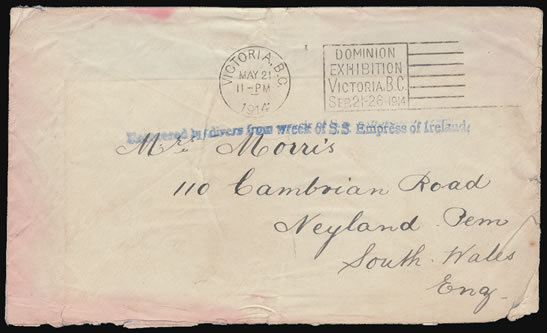 VICTORIA, B.C.
MAY 21
11-PM
1914
DOMINION
EXHIBITION
VICTORIA, B.C.
SEP. 21-26-1914
Recovered by divers from wreck of S.S. Empress of Ireland.
Mrs Morris
110 Cambrian Road
Neyland Pem
South Wales
Eng.